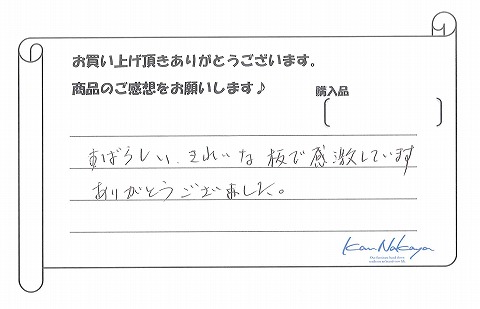 お買い上げ頂きありがとうございます。
商品のご感想をお願いします♪
購入品
すばらしい、きれいな板で感激しています
ありがとうございました。
Kan Nakaya